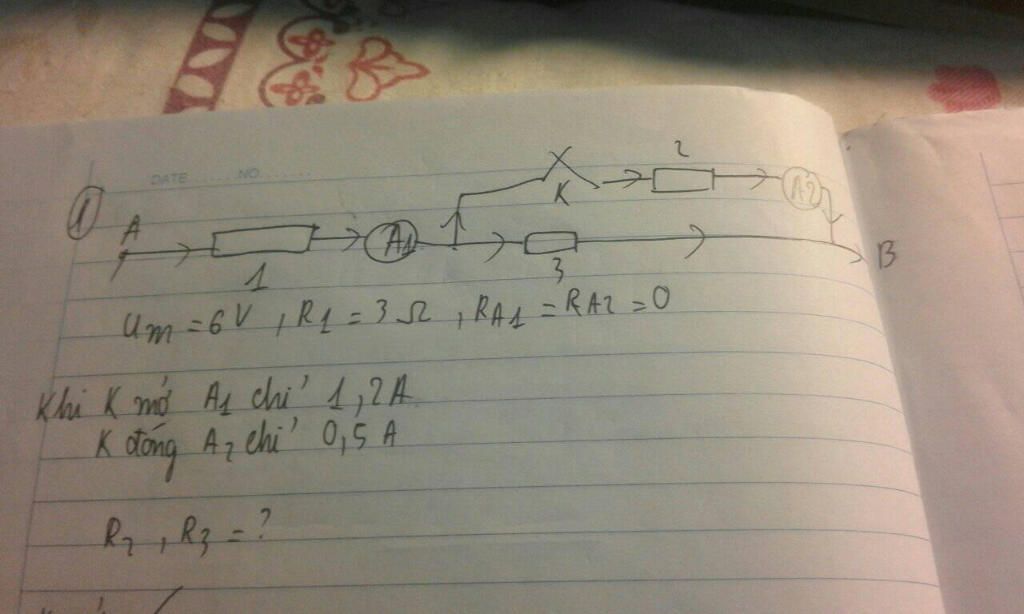 DATE.......NO.......
2
1
A
K
A2
A1
B
1
3
Um = 6V , R1 = 3 Ω , RA1 = RA2 = 0
Khi K mở A1 chỉ 1,2A
K đóng A2 chỉ 0,5 A
R2 , R3 = ?